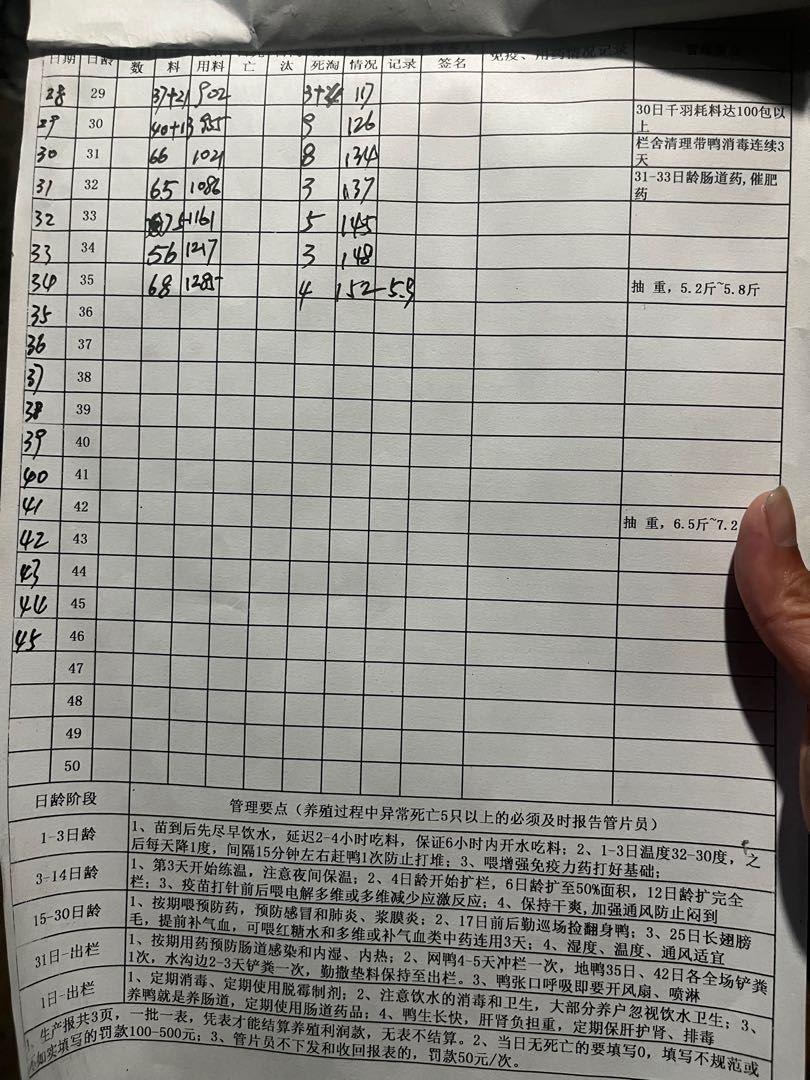 日期 日龄 数 料 用料 亡 汰 死淘 情况 记录 签名 免疫、用药情况记录
28 29 37+21 902 117
29 30 40+13 955 9 126 30日千羽耗料达100包以上
30 31 66 1021 8 134 栏舍清理带鸭消毒连续3天
31 32 65 1086 3 137 31-33日龄肠道药,催肥药
32 33 75 1161 5 145
33 34 56 1217 3 148
34 35 68 1285 4 152 5.9 抽 重，5.2斤~5.8斤
35 36
36 37
37 38
38 39
39 40
40 41
41 42
42 43 抽 重，6.5斤~7.2
43 44
44 45
45 46
47
48
49
50
日龄阶段 管理要点（养殖过程中异常死亡5只以上的必须及时报告管片员）
1-3日龄 1、苗到后先尽早饮水，延迟2-4小时吃料，保证6小时内开水吃料；2、1-3日温度32-30度，之
后每天降1度，间隔15分钟左右赶鸭1次防止打堆；3、喂增强免疫力药打好基础；
3-14日龄 1、第3天开始练温，注意夜间保温；2、4日龄开始扩栏，6日龄扩至50%面积，12日龄扩完全
栏；3、疫苗打针前后喂电解多维或多维减少应激反应；4、保持干爽,加强通风防止闷到
15-30日龄 1、按期喂预防药，预防感冒和肺炎、浆膜炎；2、17日前后勤巡场捡翻身鸭；3、25日长翅膀
毛，提前补气血，可喂红糖水和多维或补气血类中药连用3天；4、湿度、温度、通风适宜
31日-出栏 1、按期用药预防肠道感染和内湿、内热；2、网鸭4-5天冲栏一次，地鸭35日、42日各全场铲粪
1次，水沟边2-3天铲粪一次，勤撒垫料保持至出栏。3、鸭张口呼吸即要开风扇、喷淋
1日-出栏 1、定期消毒、定期使用脱霉制剂；2、注意饮水的消毒和卫生，大部分养户忽视饮水卫生；3、
养鸭就是养肠道，定期使用肠道药品；4、鸭生长快，肝肾负担重，定期保肝护肾、排毒
1、生产报共3页，一批一表，凭表才能结算养殖利润款，无表不结算。2、当日无死亡的要填写0，填写不规范或
不如实填写的罚款100-500元；3、管片员不下发和收回报表的，罚款50元/次。